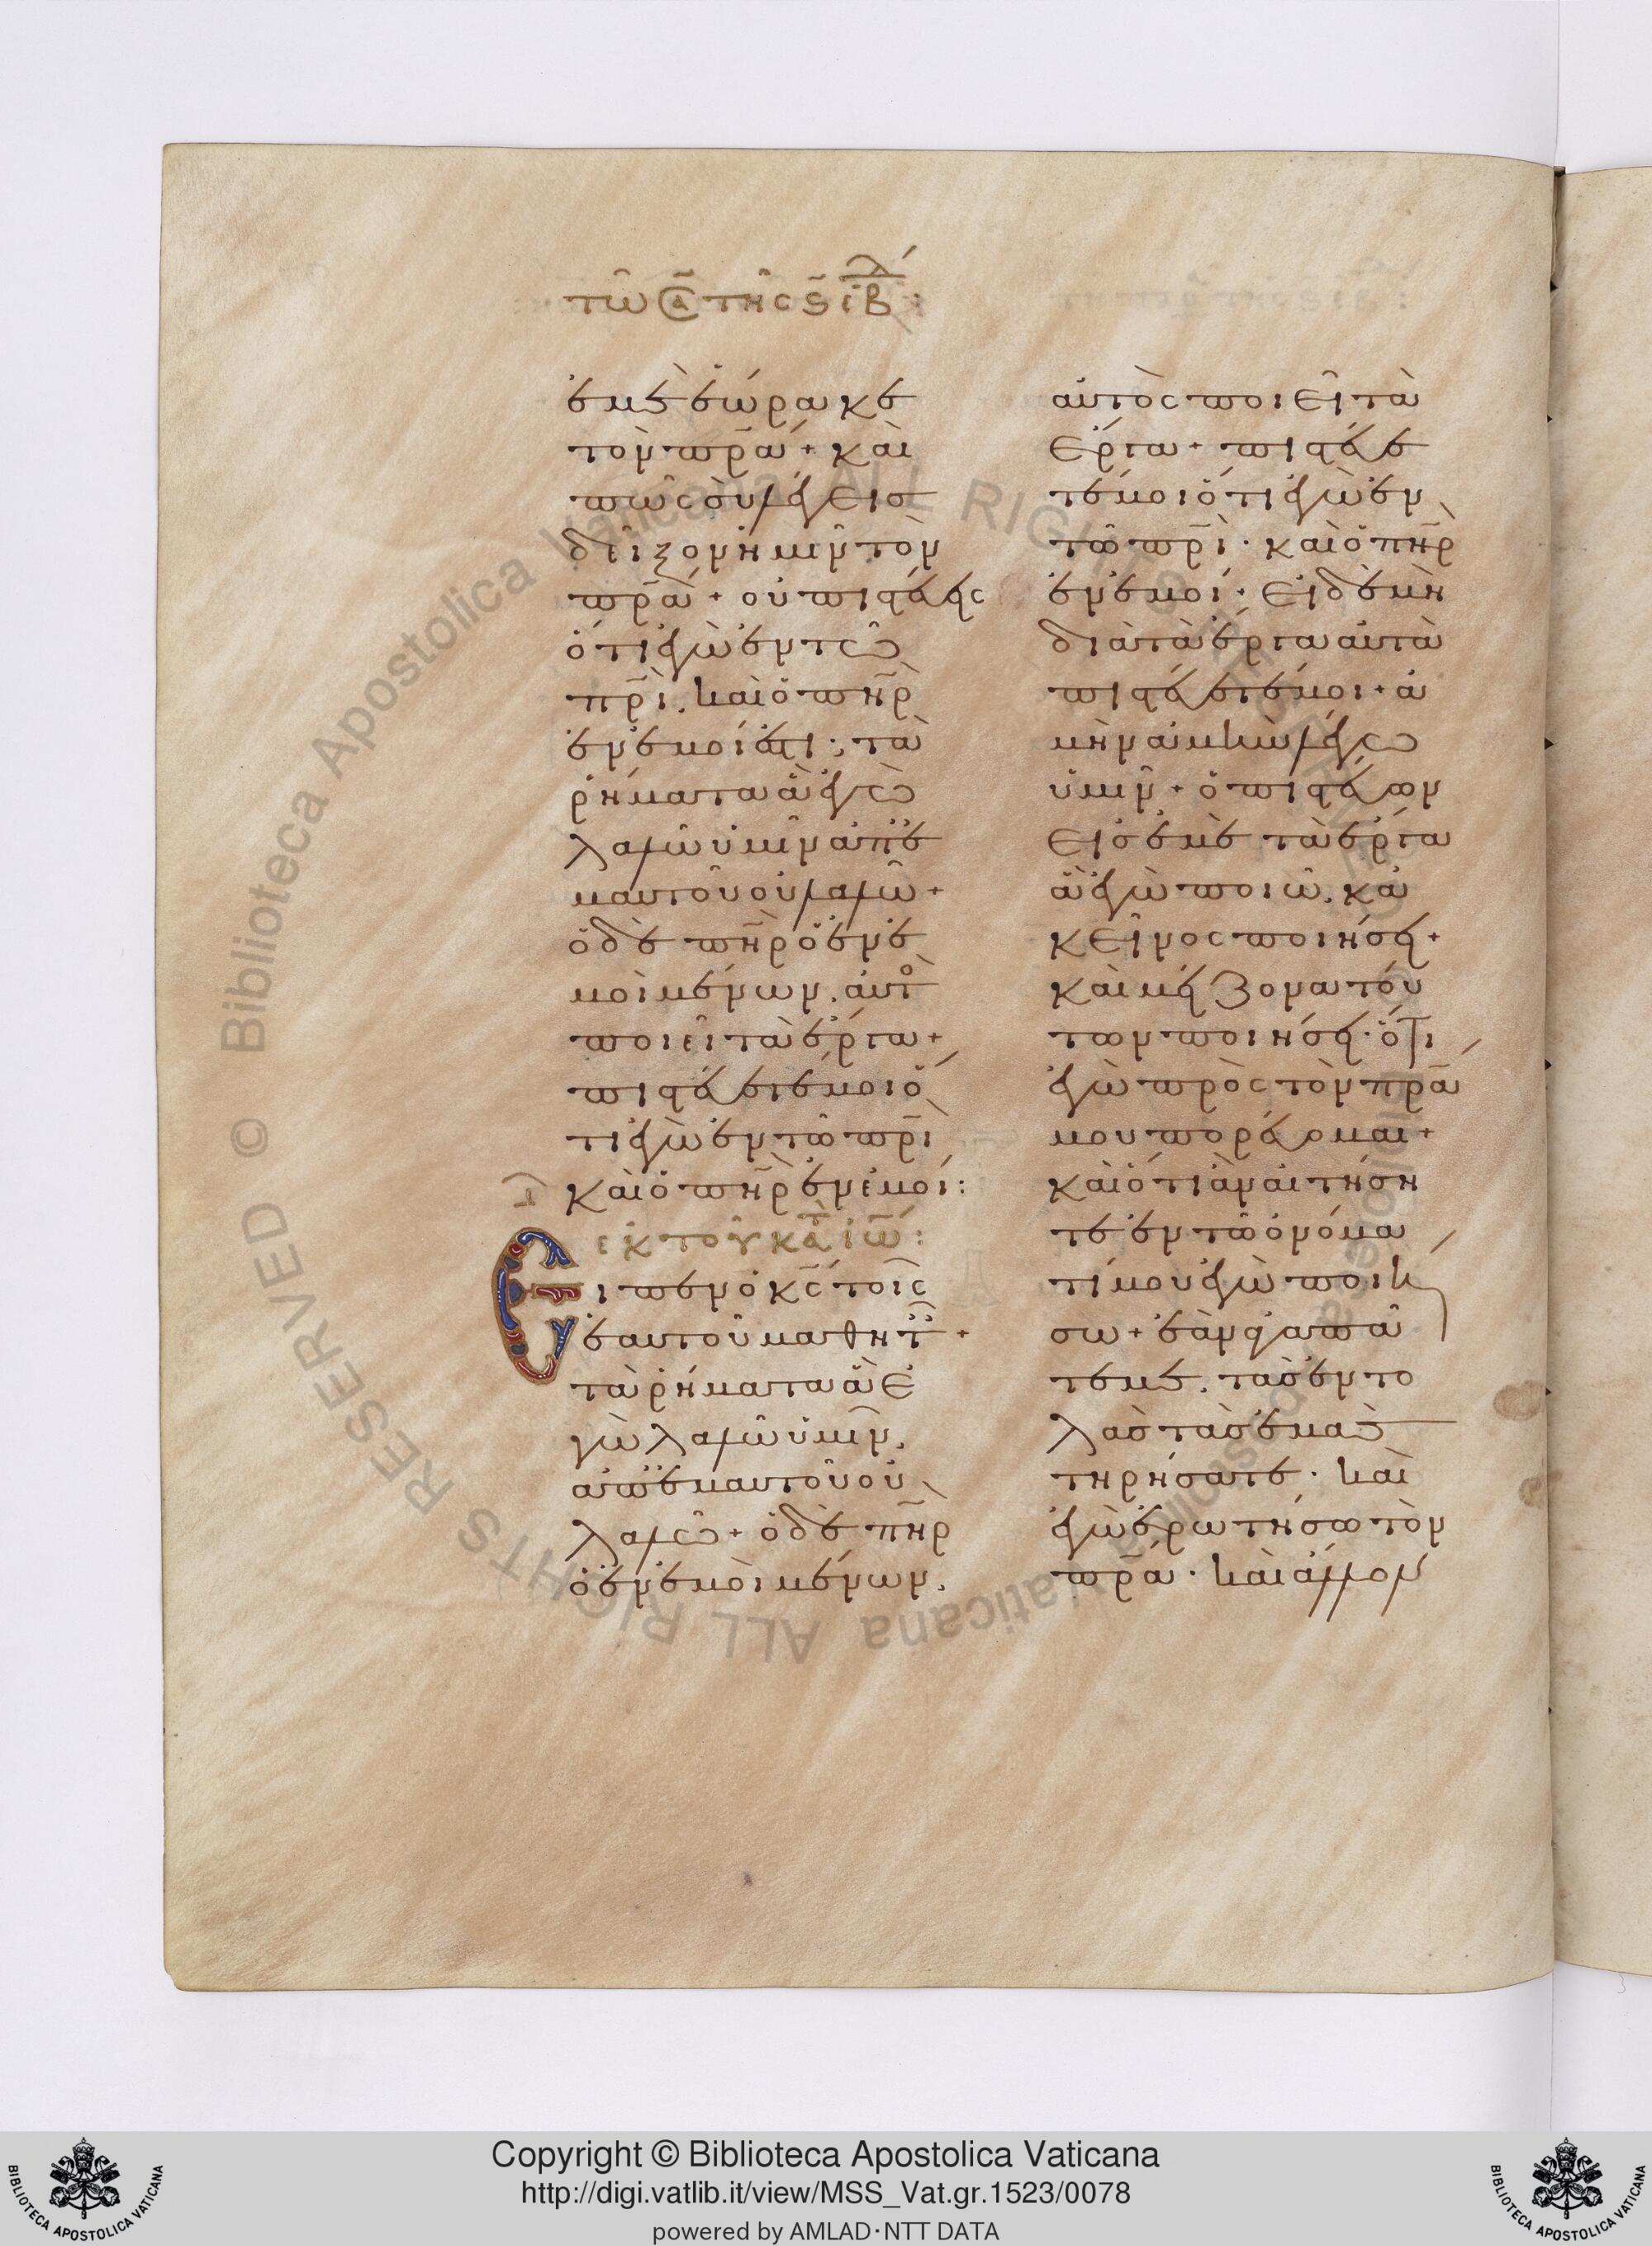 τῶ σα τῆς ς ιβ λ:
ἐμὲ ἑώρακε
τὸν πρα + καὶ
πῶς σὺ λέγεισ
δεῖξον ἡμῖν τὸν
πρα + οὐ πιστεύεις
ὅτι ἐγὼ ἐν τῶ
πρι. καὶ ὁ πηρ
ἐν ἐμοί ἐστι; τὰ
ῥήματα ἃ ἐγὼ
λαλῶ ὑμῖν ἀπ' ἐ
μαυτοῦ οὐ λαλῶ +
ὁ δὲ πηρ ὁ ἐν ἐ
μοὶ μένων. αὐτο
ποιεῖ τὰ ἔργα +
πιστεύετέ μοι ὅ
τι ἐγὼ ἐν τῶ πρι
καὶ ὁ πηρ ἐν ἐμοί:
ἐκ τοῦ κατ ἰω:
Εἶπεν ὁ κς τοῖς
ἑαυτοῦ μαθητ +
τὰ ῥήματα ἃ ἐ
γὼ λαλῶ ὑμῖν.
ἀπ' ἐμαυτοῦ οὐ
λαλῶ + ὁ δὲ πηρ
ὁ ἐν ἐμοὶ μένων.
αὐτὸς ποιεῖ τὰ
ἔργα + πιστεύε
τέ μοι ὅτι ἐγὼ ἐν
τῶ πρι · καὶ ὁ πηρ
ἐν ἐμοί · εἰ δὲ μὴ
διὰ τὰ ἔργα αὐτὰ
πιστεύετέ μοι + ἀ
μὴν ἀμὴν λέγω
ὑμῖν + ὁ πιστεύων
εἰσ ἐμὲ τὰ ἔργα
ἃ ἐγὼ ποιῶ. κἀ
κεῖνος ποιήσει +
καὶ μείζονα τού
των ποιήσει · ὅτι
ἐγὼ πρὸς τὸν πρα
μου πορεύομαι +
καὶ ὅτι ἂν αἰτήση
τε ἐν τῶ ὀνόμα
τί μου ἐγὼ ποιή
σω + ἐὰν ἀγαπᾶ
τέ με. τὰσ ἐντο
λὰσ τὰσ ἐμὰς
τηρήσατε · καὶ
ἐγὼ ἐρωτήσω τὸν
πρα · καὶ ἄλλον
Copyright © Biblioteca Apostolica Vaticana
http://digi.vatlib.it/view/MSS_Vat.gr.1523/0078
powered by AMLAD·NTT DATA
BIBLIOTECA APOSTOLICA VATICANA
BIBLIOTECA APOSTOLICA VATICANA
© Biblioteca Apostolica Vaticana ALL RIGHTS RESERVED